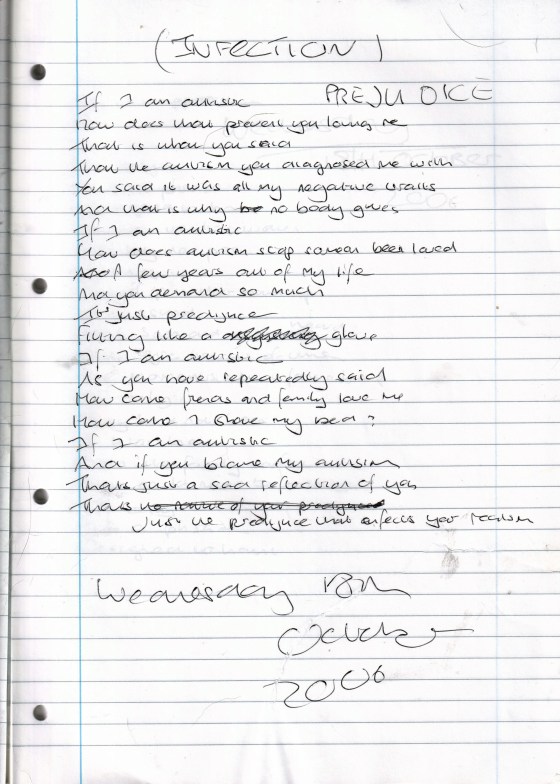 (INFECTION)
PREJUDICE
If I am autistic
How does that prevent you loving me
That is what you said
That the autism you diagnosed me with
You said it was all my negative traits
And that is why no body gives
If I am autistic
How does autism stop been loved
A few years out of my life
And you demand so much
It's just predjuice
Fitting like a glove
If I am autistic
As you have repeatedly said
How come friends and family love me
How come I share my bed?
If I am autistic
And if you blame my autism
Thats just a sad reflection of you
Thats the nature of your predjuice
Just the predjuice that infects your
Wednesday 18th
October
2006